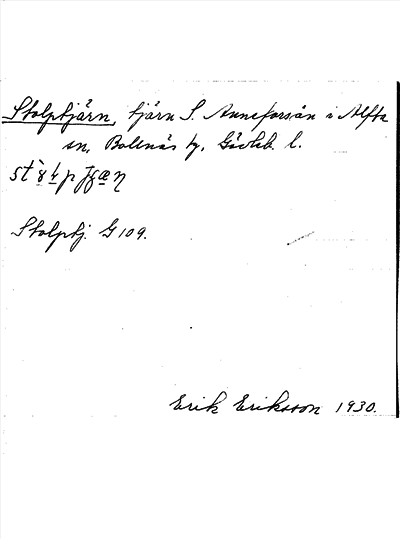 Stolptjärn, tjärn S. Anneforsån i Alfta
sn, Bollnäs tg, Gävleb. l.
Stolptj. G 109.
Erik Eriksson 1930.